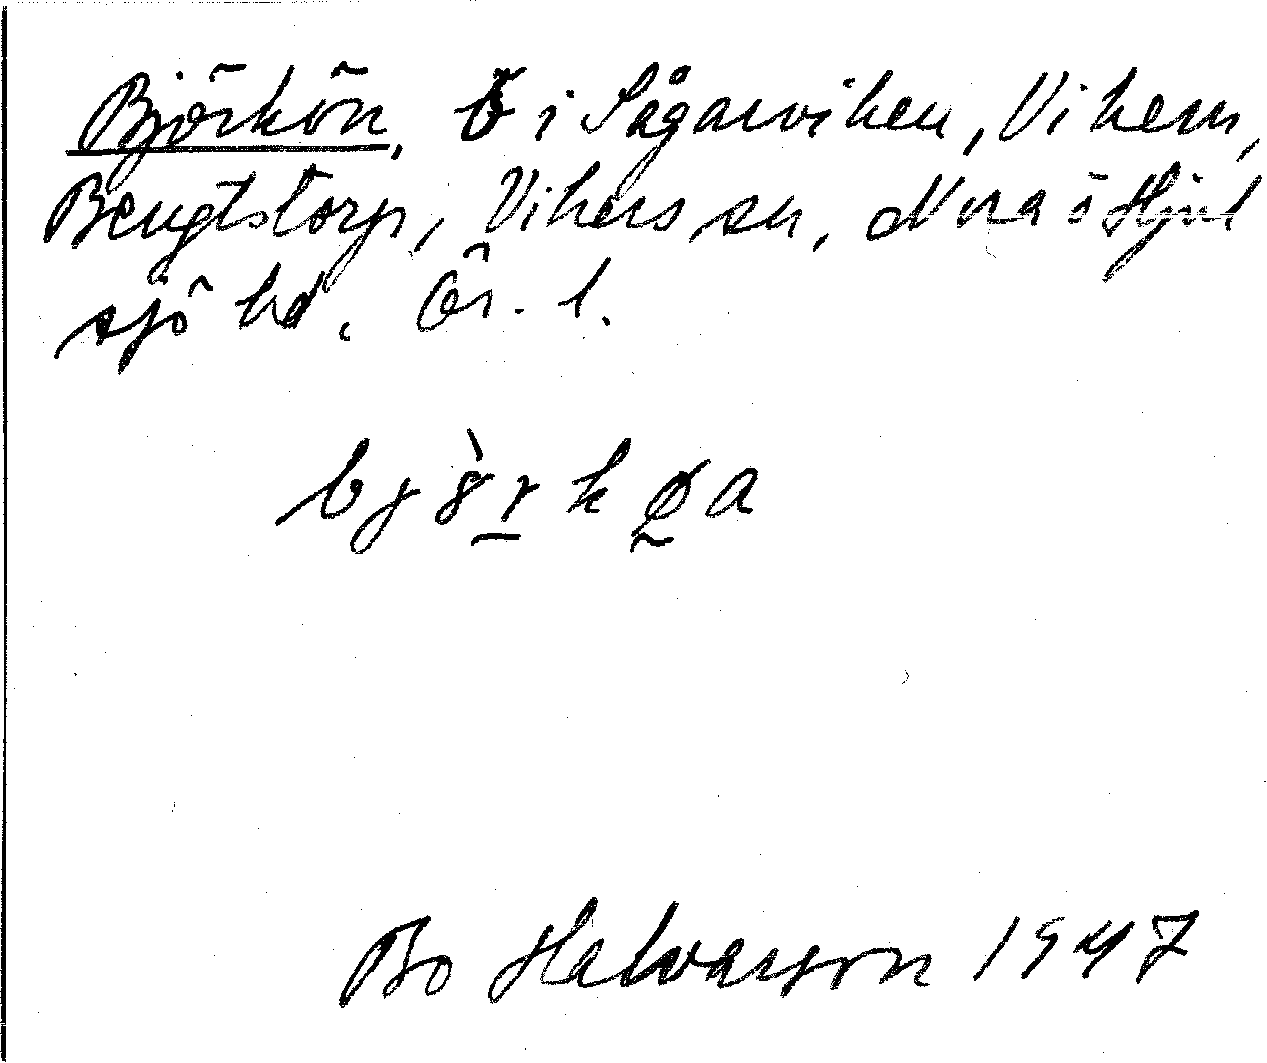 Björkön, Ö i Sågarviken, Vikern,
Bengtstorp, Vikers sn, Nora o Hjul
sjö hd. Ör. l.
Bo Halvarson 1947